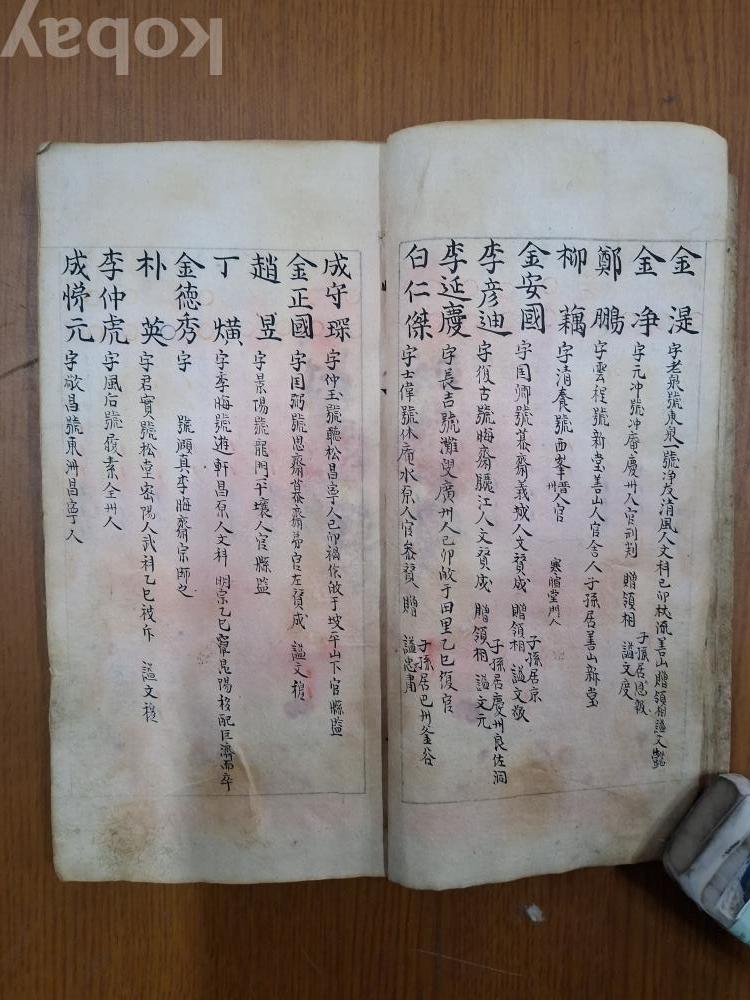 kobay
金湜 字老泉號東泉一號淨友清風人文科己卯杖流善山贈領相謚文毅
金淨 字元冲號冲庵慶州人官刑判 贈領相 謚文度 子孫居恩報
鄭鵬 字雲程號新堂善山人官舍人子孫居善山新堂
柳藕 字清養號西峯晋州人官 寒暄堂門人
金安國 字国卿號慕齋義城人文賛成 贈領相 謚文敬 子孫居京
李彦迪 字復古號晦齋驪江人文賛成 贈領相 謚文元 子孫居慶州良佐洞
李延慶 字長吉號灘叟廣州人己卯放于田里乙巳復官
白仁傑 字士偉號休庵水原人官叅賛 贈 謚忠肅 子孫居巴州釜谷
成守琛 字仲玉號聽松昌寧人己卯禍作放于坡平山下官縣監
金正國 字国弼號思齋慕齋弟官左賛成 謚文穆
趙昱 字景陽號龍門平壤人官縣監
丁熿 字季晦號遊軒昌原人文科 明宗乙巳竄昆陽移配巨濟而卒
金德秀 字 號頤真李晦齋宗師之
朴英 字君實號松堂密陽人武科乙巳被斥 謚文穆
李仲虎 字風后號履素全州人
成悌元 字敬昌號東洲昌寧人